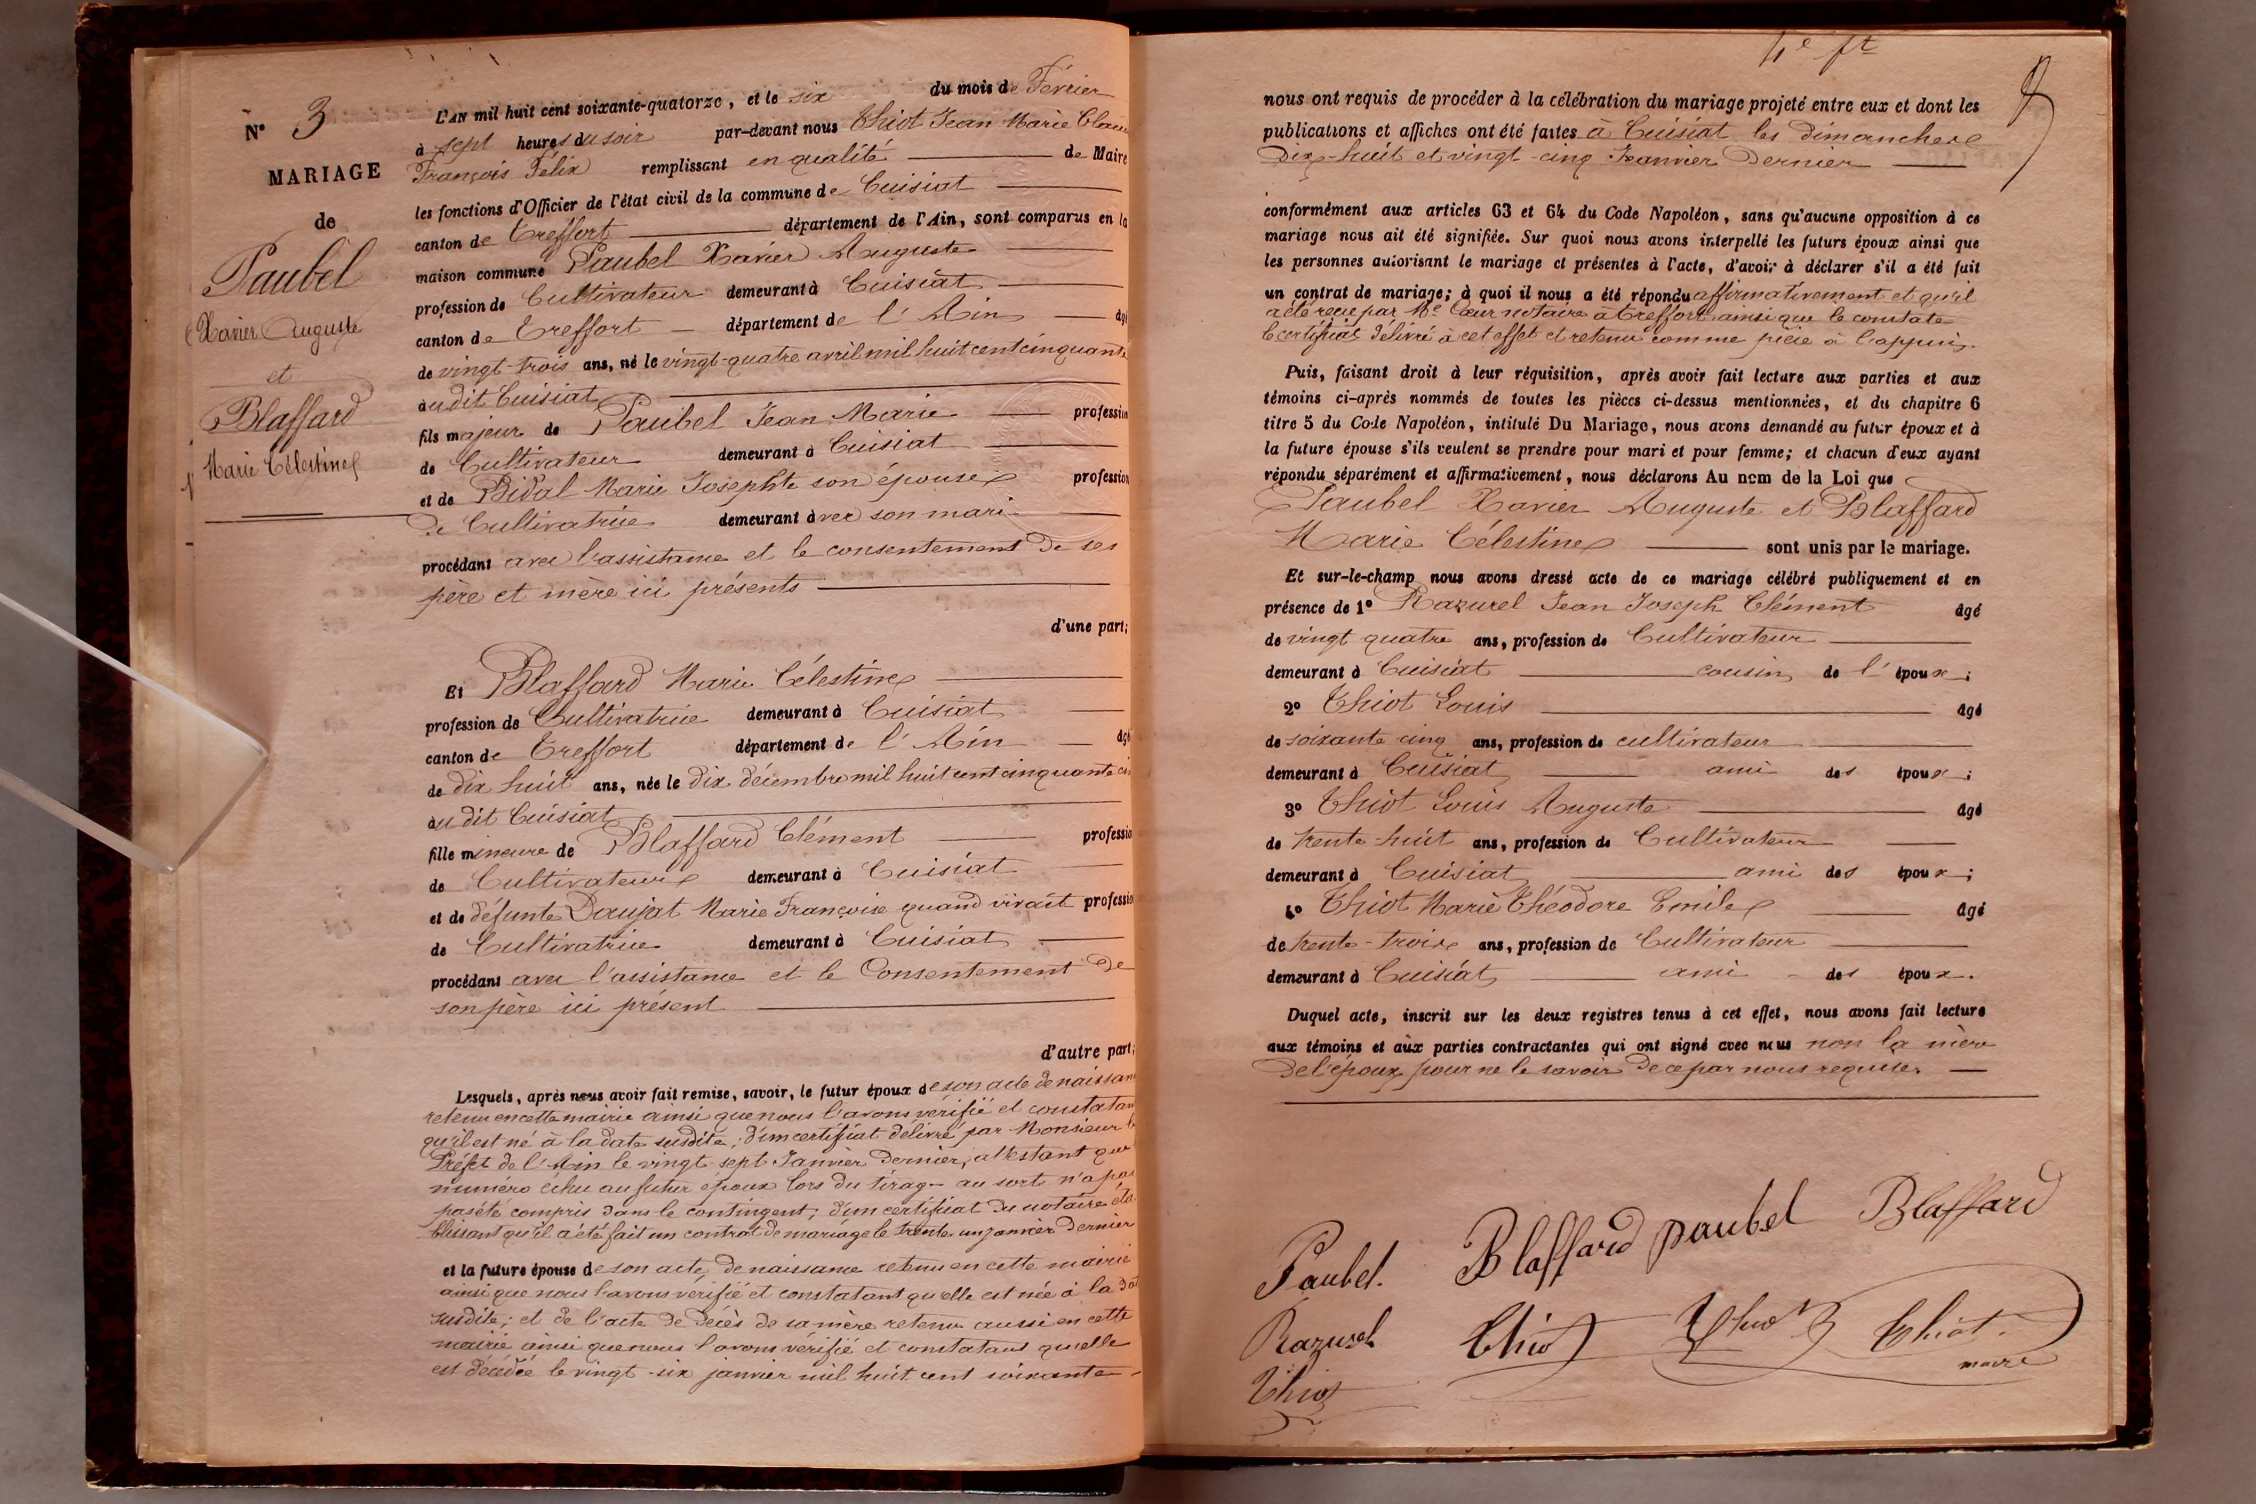 N° 3
MARIAGE
de
Paubel
Xavier Auguste
et
Blaffard
Marie Célestine
L'AN mil huit cent soixante-quatorze, et le six du mois de Février
à sept heures du soir par-devant nous Thiot Jean Marie
François Félix remplissant en qualité de Maire
les fonctions d'Officier de l'état civil de la commune de Cuisiat
canton de Treffort département de l'Ain, sont comparus en la
maison commune Paubel Xavier Auguste
profession de Cultivateur demeurant à Cuisiat
canton de Treffort département de l'Ain âgé
de vingt-trois ans, né le vingt-quatre avril mil huit cent cinquante
au dit Cuisiat
fils majeur de Paubel Jean Marie profession
de Cultivateur demeurant à Cuisiat
et de Bidal Marie Josephte son épouse profession
de Cultivatrice demeurant avec son mari
procédant avec l'assistance et le consentement de ses
père et mère ici présents
d'une part;
Et Blaffard Marie Célestine
profession de Cultivatrice demeurant à Cuisiat
canton de Treffort département de l'Ain âgé
de dix huit ans, née le dix décembre mil huit cent cinquante
au dit Cuisiat
fille mineure de Blaffard Clément profession
de Cultivateur demeurant à Cuisiat
et de défunte Daujat Marie Françoise quand vivait profession
de Cultivatrice demeurant à Cuisiat
procédant avec l'assistance et le Consentement de
son père ici présent
d'autre part;
Lesquels, après nous avoir fait remise, savoir, le futur époux de son acte de naissance
retenu en cette mairie ainsi que nous l'avons vérifié et constatant
qu'il est né à la date susdite; d'un certificat délivré par Monsieur le
Préfet de l'Ain le vingt sept Janvier dernier, attestant que
numéro échu au futur époux lors du tirage au sort n'a pas
pas été compris dans le contingent; d'un certificat du notaire éta
blissant qu'il a été fait un contrat de mariage le trente un janvier dernier
et la future épouse de son acte de naissance retenu en cette mairie
ainsi que nous l'avons vérifié et constatant qu'elle est née à la date
susdite; et de l'acte de décès de sa mère retenu aussi en cette
mairie ainsi que nous l'avons vérifié et constatant qu'elle
est décédée le vingt-six janvier mil huit cent soixante-
4e ft
nous ont requis de procéder à la célébration du mariage projeté entre eux et dont les
publications et affiches ont été faites à Cuisiat les dimanches
Dix-huit et vingt-cinq Janvier Dernier
conformément aux articles 63 et 64 du Code Napoléon, sans qu'aucune opposition à ce
mariage nous ait été signifiée. Sur quoi nous avons interpellé les futurs époux ainsi que
les personnes autorisant le mariage et présentes à l'acte, d'avoir à déclarer s'il a été fait
un contrat de mariage; à quoi il nous a été répondu affirmativement et qu'il
a été reçu par Me Cœur notaire à Treffort ainsi que le constate
le certificat délivré à cet effet et retenu comme pièce à l'appui.
Puis, faisant droit à leur réquisition, après avoir fait lecture aux parties et aux
témoins ci-après nommés de toutes les pièces ci-dessus mentionnées, et du chapitre 6
titre 5 du Code Napoléon, intitulé Du Mariage, nous avons demandé au futur époux et à
la future épouse s'ils veulent se prendre pour mari et pour femme; et chacun d'eux ayant
répondu séparément et affirmativement, nous déclarons Au nom de la Loi que
Paubel Xavier Auguste et Blaffard
Marie Célestine sont unis par le mariage.
Et sur-le-champ nous avons dressé acte de ce mariage célébré publiquement et en
présence de 1° Razurel Jean Joseph Clément âgé
de vingt quatre ans, profession de Cultivateur
demeurant à Cuisiat cousin de l'époux;
2° Thiot Louis âgé
de soixante cinq ans, profession de cultivateur
demeurant à Cuisiat ami des époux;
3° Thiot Louis Auguste âgé
de trente-huit ans, profession de Cultivateur
demeurant à Cuisiat ami des époux;
4° Thiot Marie Théodore Emile âgé
de trente-trois ans, profession de Cultivateur
demeurant à Cuisiat ami des époux.
Duquel acte, inscrit sur les deux registres tenus à cet effet, nous avons fait lecture
aux témoins et aux parties contractantes qui ont signé avec nous non la mère
de l'époux pour ne le savoir de ce par nous requise.
Paubel. Blaffard paubel Blaffard
Razurel Thiot Thiot Thiot.
maire
Thiot